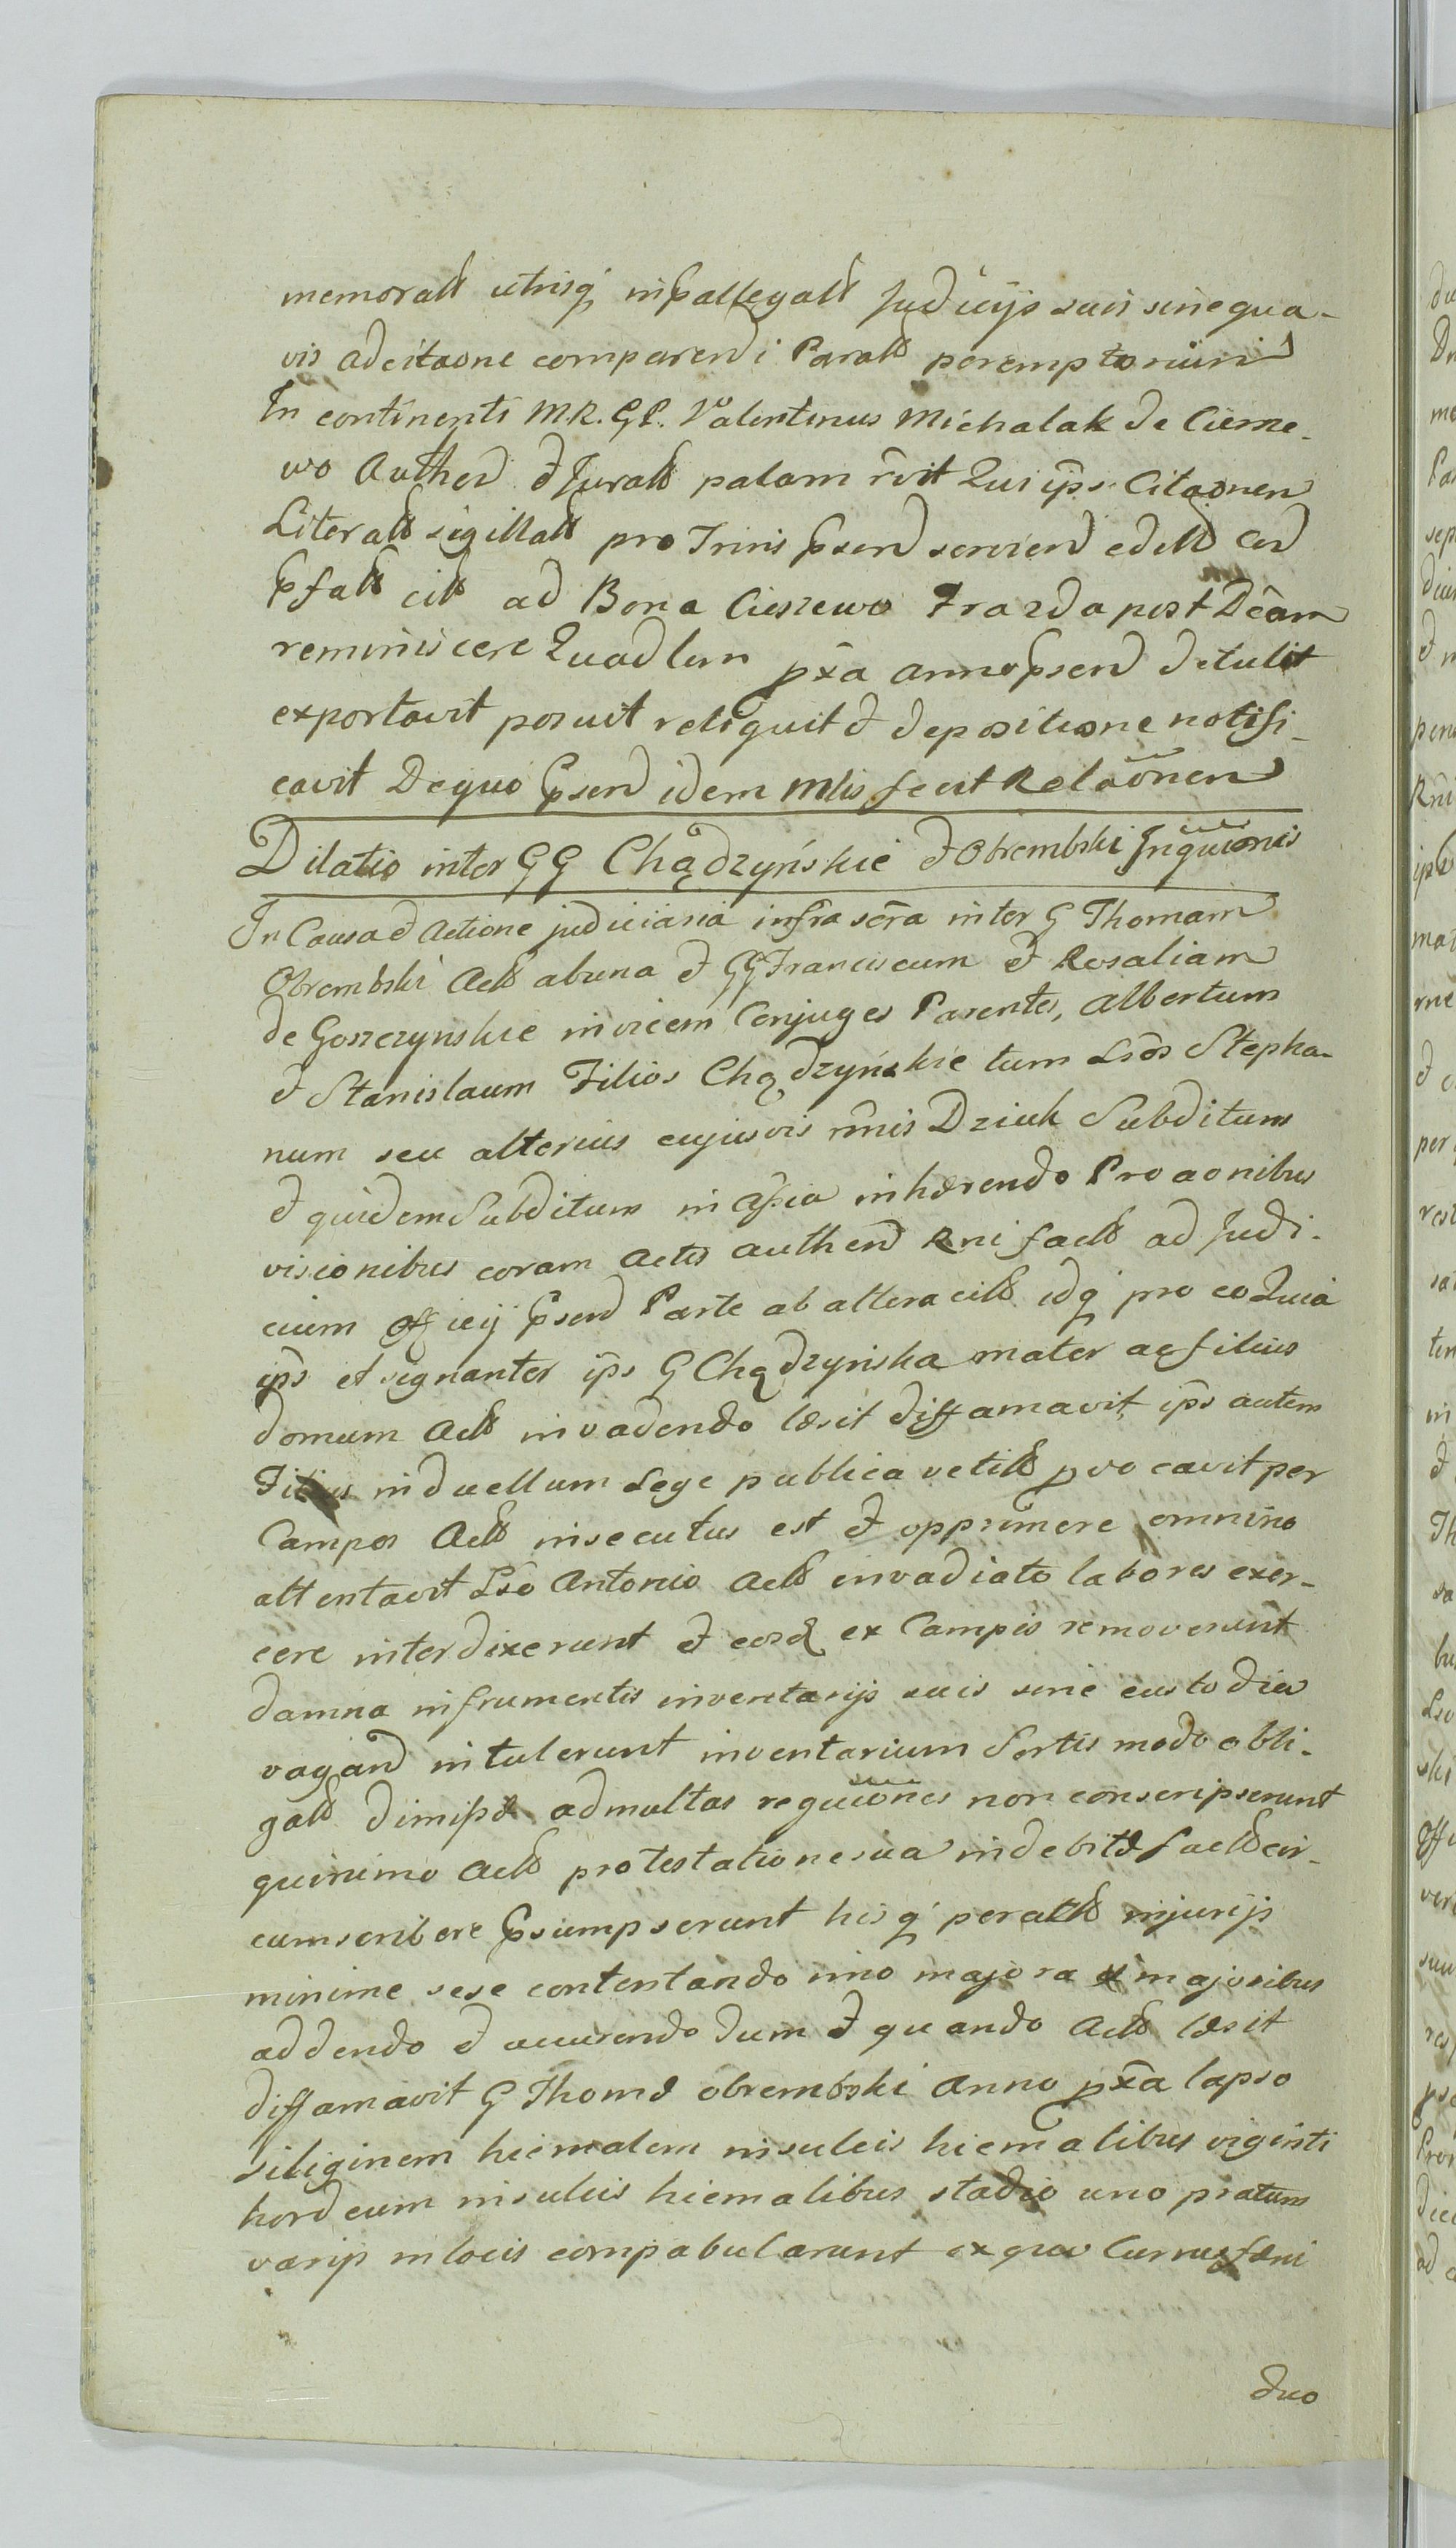 memoratt utrisq̃ in p̃allegatt Judicijs suis sine qua-
vis adcitaone comparendi Paratt peremptorium
In continenti M.R. G.P. Valentinus Michalak de Cieme-
wo Authen̄ & Juratt palam rv̄it Qui ip̄s. Citaonen
Literatt sigillatt pro Trinis p̃sen̄ servien̄ edett Cer
p̃fatt citt ad Bona Cieszewo Trazda post Dc̄am
reminiscere Quadlem px̄a anno p̃sen̄ detulit
exportavit posuit reliquit & depositione notifi-
cavit De quo p̃sen̄ idem Mlis fecit Relaōnen
Dilatio inter GG Chądzyńskie & Obrembski Inquiōnis
In Causa & Actione judiciaria infra scr̄a inter G Thomam
Obrembski Actt ab una & GG Franciscum & Rosaliam
de Goszczynskie invicem Conjuges Parentes, Albertum
& Stanislaum Filios Chądzyńskie tum Lsōs Stepha-
num seu alterius cujusvis nn̄is Dziuk Subditum
& quidem Subditum in asst̄ia inhærendo Pro aonibus
visionibus coram Actis authen̄ Rni factt ad Judi-
cium officij p̃sen̄ Parte ab altera citt idq̃ pro eo Quia
ip̄s et signanter ip̄s G Chądzyńska mater ac filius
domum Actt invadendo læsit diffamavit, ip̄s autem
Filius in duellum Lege publica vetitt provocavit per
Campos Actt insecutus est & opprimere omnino
attentavit Lsō Antonio Actt invadiato labores exer-
cere interdixerunt & eosd̄ ex Campis removerunt
damna in frumentis inventarijs suis sine custodia
vagan̄ intulerunt inventarium Sortis modo obli-
gatt dimissæ ad multas requiōnes non conscripserunt
quinimo Actt protestatione sua indebitæ factt cir-
cumscribere p̃sumpserunt hisq̃ peractt injurijs
minime sese contentando imo majora majoribus
addendo & accurendo dum & quando Actt læsit
diffamavit G Thomæ Obrembski Anno px̄a lapso
siliginem hiemalem in sulcis hiemalibus viginti
hordeum in sulcis hiemalibus stadio uno pratum
varijs in locis compabularunt ex quo Currus fæni
duo